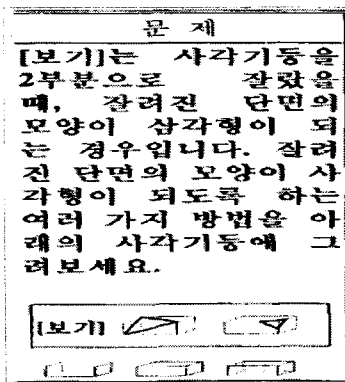 문 제
[보기]는 사각기둥을
2부분으로 잘랐을
때, 잘려진 단면의
모양이 삼각형이 되
는 경우입니다. 잘려
진 단면의 모양이 사
각형이 되도록 하는
여러 가지 방법을 아
래의 사각기둥에 그
려보세요.
[보기]